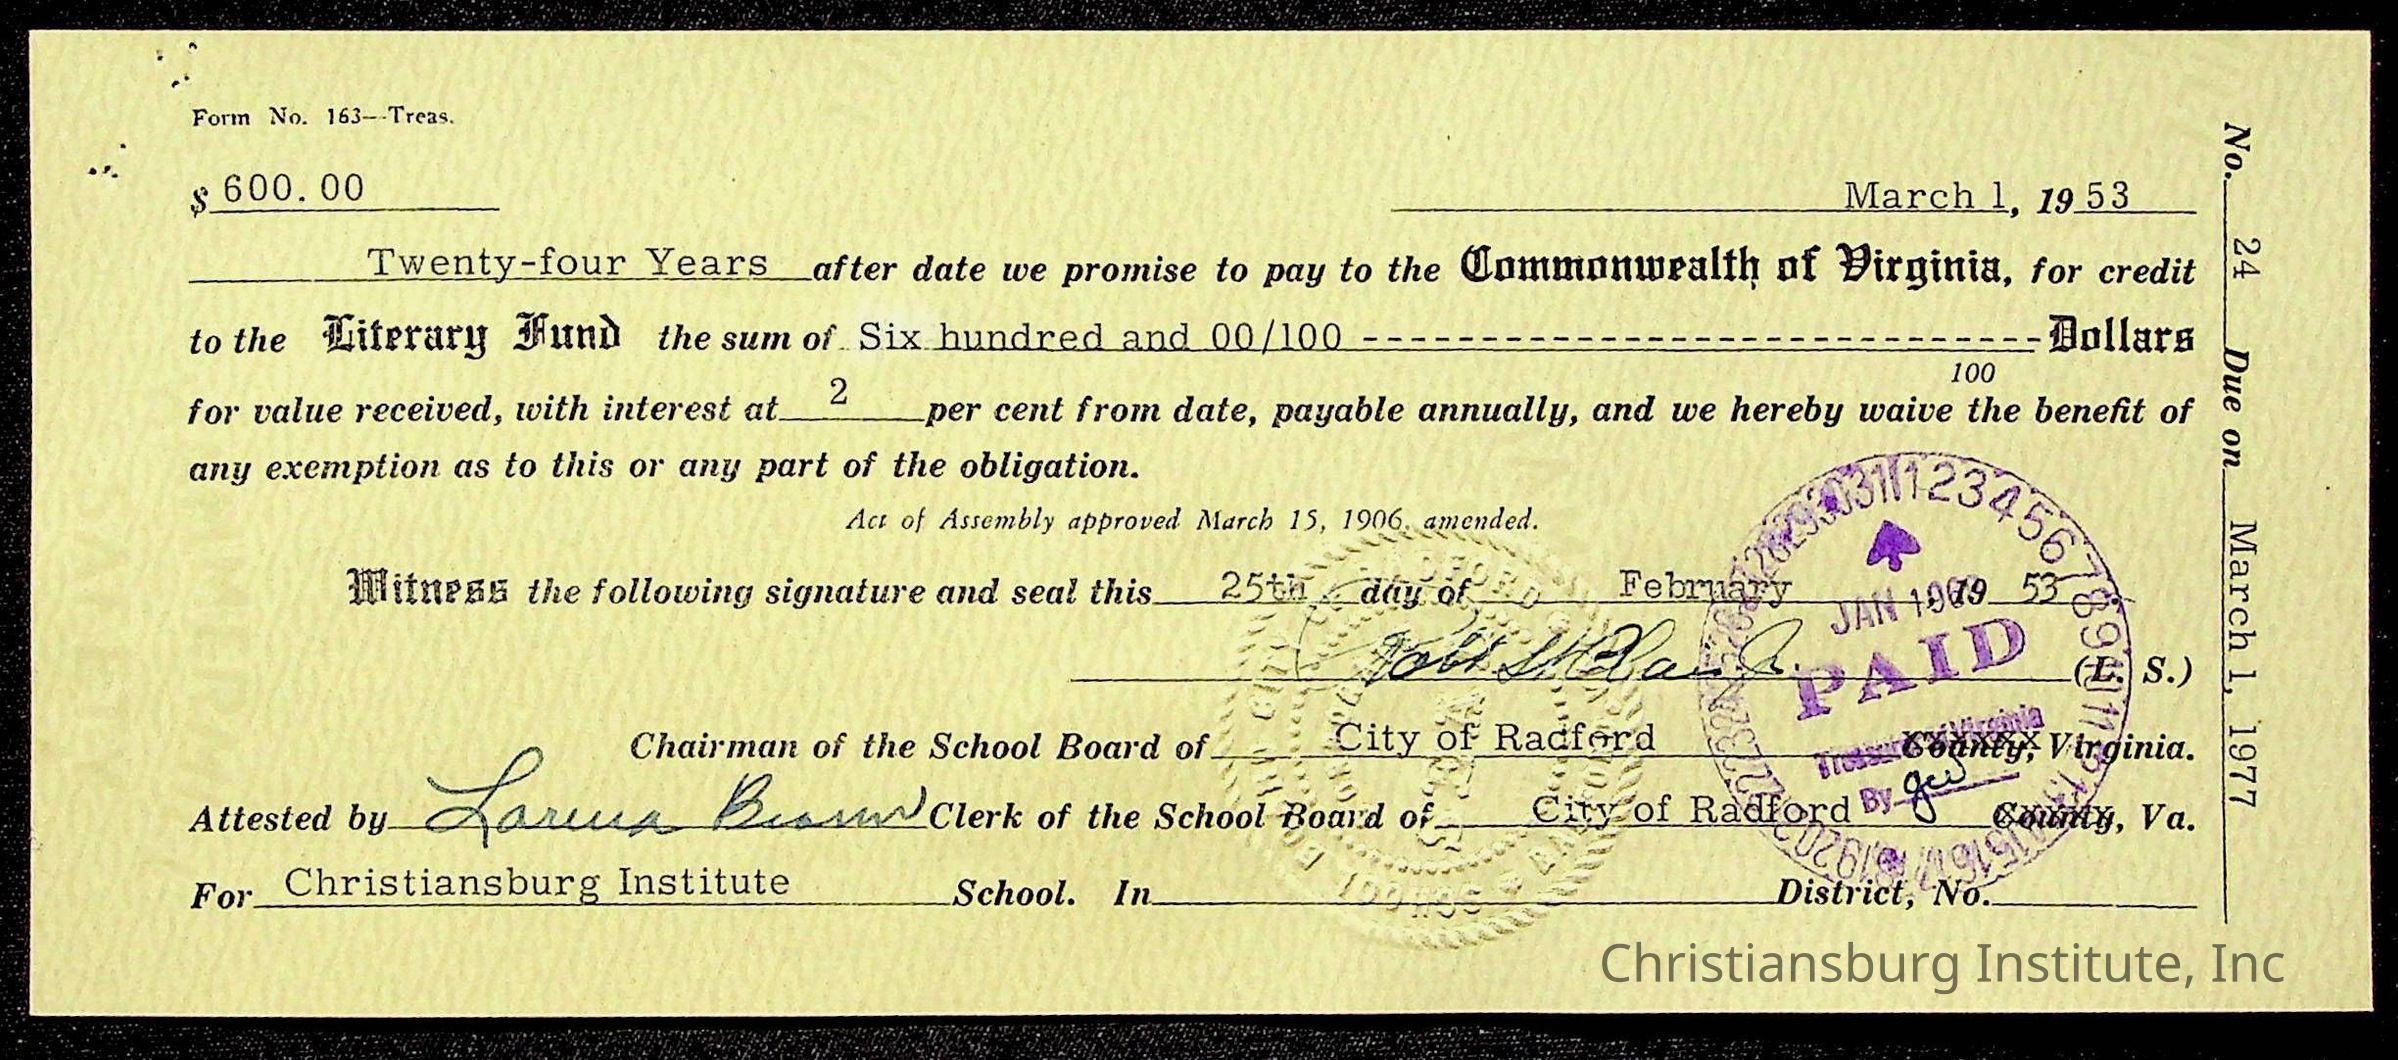 Form No. 163—Treas.
$ 600.00
March 1, 19 53
Twenty-four Years after date we promise to pay to the Commonwealth of Virginia, for credit
to the Literary Fund the sum of Six hundred and 00/100 ----------------------------- Dollars
100
for value received, with interest at 2 per cent from date, payable annually, and we hereby waive the benefit of
any exemption as to this or any part of the obligation.
Act of Assembly approved March 15, 1906, amended.
Witness the following signature and seal this 25th day of February, 19 53
(L. S.)
Chairman of the School Board of City of Radford County, Virginia.
Attested by Lorena Clerk of the School Board of City of Radford County, Va.
For Christiansburg Institute School. In District, No.
No. 24 Due on March 1, 1977
JAN 1
PAID
Virginia
By
Christiansburg Institute, Inc